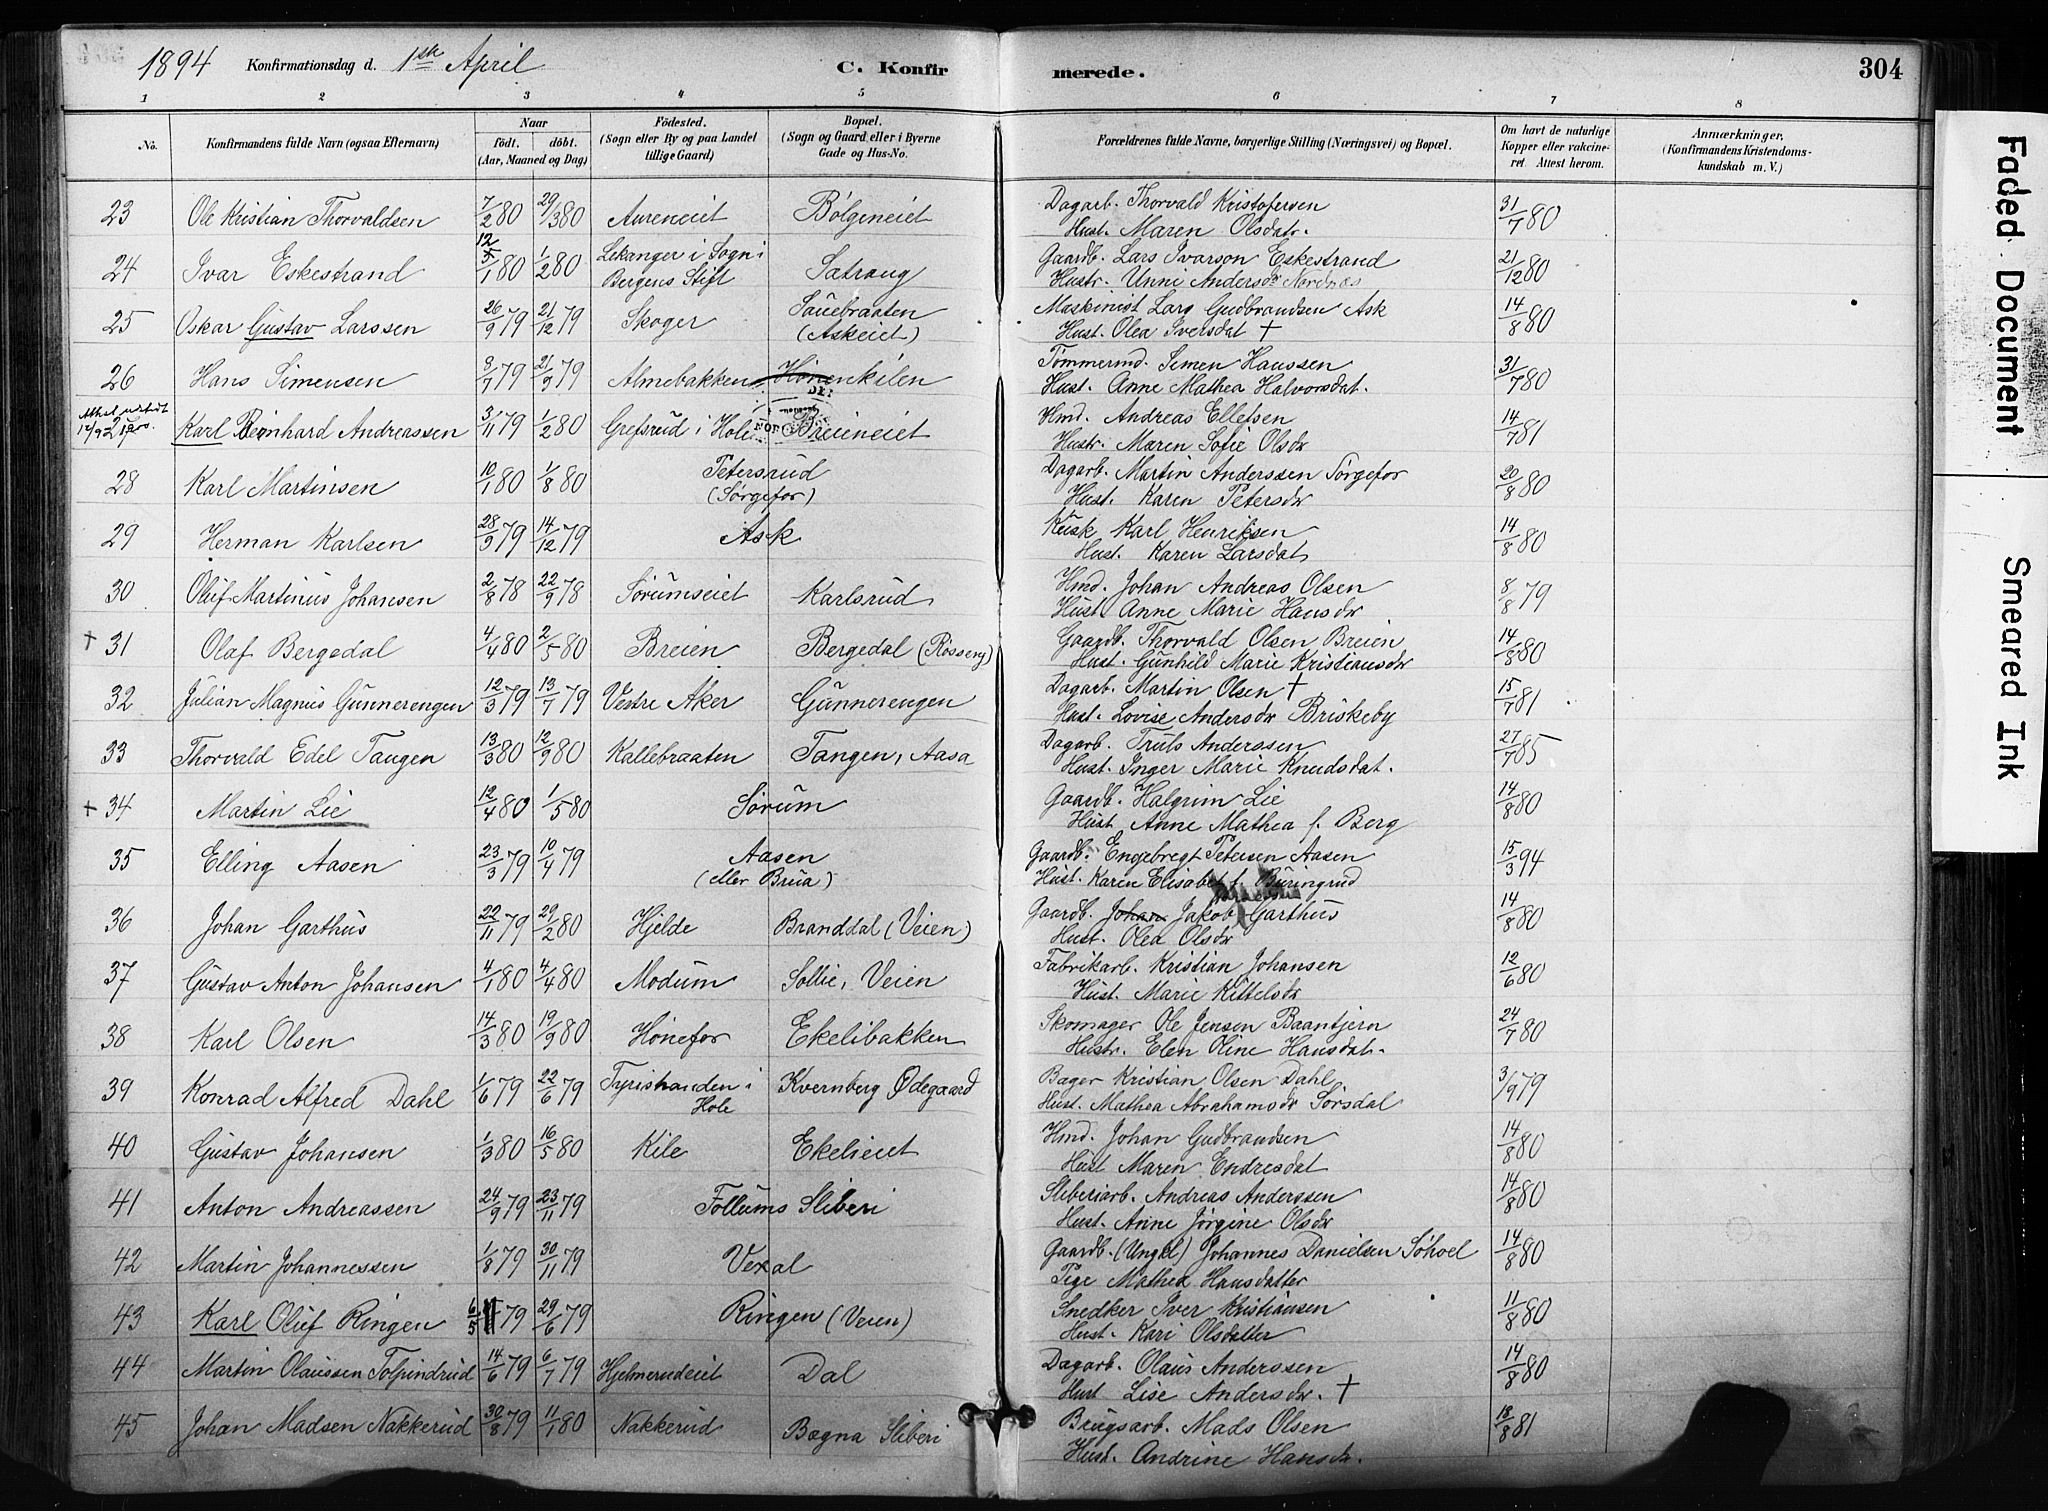 1894 Konfirmationsdag d. 1ste April C. Konfirmerede. 304
1 2 3 4 5 6 7 8
No. Konfirmandens fulde Navn (ogsaa Efternavn) Naar Født. døbt. (Aar, Maaned og Dag) Fødested. (Sogn eller By og paa Landet tillige Gaard) Bopæl. (Sogn og Gaard eller i Byerne Gade og Hus-No. Forældrenes fulde Navne, borgerlige Stilling (Næringsvei) og Bopæl. Om havt de naturlige Kopper eller vakcineret. Attest herom. Anmærkninger, (Konfirmandens Kristendomskundskab m. V.)
23 Ole Kristian Thorvaldsen 7/2 80 29/3 80 Aureneiet Bølgeneiet Dagarb. Thorvald Kristofersen 31/7 80
Hust. Maren Olsdatr.
24 Ivar Eskestrand 12/1 80 1/2 80 Lekanger i Sogn i Bergens Stift Satrang Gaardb. Lars Ivarson Eskestrand 21/12 80
Hustr. Unni Andersdr Nordnæs
25 Oskar Gustav Larssen 26/9 79 21/12 79 Skoger Sauebraaten (Askeiet) Maskinist Lars Gudbrandsen Ask 14/8 80
Hust. Olea Iversdat †
26 Hans Simensen 8/7 79 21/9 79 Almebakken Hønenkilen Tømmermd. Simen Hanssen 31/7 80
Hust. Anne Mathea Halvorsdat.
Karl Beinhard Andreassen 3/11 79 1/2 80 Grefsrud i Hole Breieneiet Hmd. Andreas Ellefsen 14/7 81
Hustr. Maren Sofie Olsdr
28 Karl Martinsen 10/1 80 1/8 80 Petersrud (Sørgefor) Dagarb. Martin Anderssen Sørgefor 20/8 80
Hust. Karen Petersdr
29 Herman Karlsen 28/9 79 14/12 79 Ask Kusk Karl Henriksen 14/8 80
Hust. Karen Larsdat
30 Oluf Martinus Johansen 2/8 78 22/9 78 Sørumseiet Karlsrud Hmd. Johan Andreas Olsen 8/8 79
Hust. Anne Marie Hansdr
† 31 Olaf Bergedal 4/4 80 2/5 80 Breien Bergedal (Røsseng) Gaardb. Thorvald Olsen Breien 14/8 80
Hust. Gunhild Marie Kristiansdr
32 Julian Magnus Gunnerengen 12/3 79 13/7 79 Vestre Aker Gunnerengen Dagarb. Martin Olsen † 15/7 81
Hust. Lovise Andersdr Briskeby
33 Thorvald Edel Tangen 13/3 80 12/9 80 Kallebraaten Tangen, Aasa Dagarb. Truls Anderssen 27/7 85
Hust. Inger Marie Knudsdat.
† 34 Martin Lie 12/4 80 1/5 80 Sørum Gaardb. Halgrim Lie 14/8 80
Hust. Anne Mathea f. Berg
35 Elling Aasen 23/3 79 10/4 79 Aasen (eller Brua) Gaardb. Engebregt Petersen Aasen 15/3 94
Hust. Karen Elisabet f. Buringrud
36 Johan Garthus 22/11 79 29/2 80 Hjelde Branddal (Veien) Gaardb. Johan Jakob Garthus 14/8 80
Hust. Olea Olsdr
37 Gustav Anton Johansen 4/1 80 4/4 80 Modum Sollie, Veien Fabrikarb. Kristian Johansen 12/6 80
Hust. Marie Kittelsdr
38 Karl Olsen 14/3 80 19/9 80 Hønefos Ekelibakken Skomager Ole Jensen Baantjern 24/7 80
Hustr. Elen Oline Hansdat.
39 Konrad Alfred Dahl 1/6 79 22/6 79 Tyristranden i Hole Kvernberg Ødegaard Bager Kristian Olsen Dahl 3/9 79
Hust. Mathea Abrahamsdr Sørsdal
40 Gustav Johansen 1/3 80 16/5 80 Kile Ekelieiet Hmd. Johan Gudbrandsen 14/8 80
Hust Maren Endresdat
41 Anton Andreassen 24/9 79 23/11 79 Follums Sliberi Sliberiarb. Andreas Anderssen 14/8 80
Hust. Anne Jørgine Olsdr
42 Martin Johannessen 1/8 79 30/11 79 Vexal Gaardb. (Ungkl) Johannes Danielsen Søhoel 14/8 80
Pige Mathea Hansdatter
43 Karl Oluf Ringen 6/5 79 29/6 79 Ringen (Veien) Snedker Iver Kristiansen 11/8 80
Hust. Kari Olsdatter
44 Martin Olaussen Tolpindrud 14/6 79 6/7 79 Hjelmerudeiet Dal Dagarb. Olaus Anderssen 14/8 80
Hust Lise Andersdr. †
45 Johan Madsen Nakkerud 30/8 79 11/1 80 Nakkerud Bægna Sliberi Brugsarb. Mads Olsen 18/8 81
Hust. Andrine Hansdr.
Faded Document
Smeared Ink